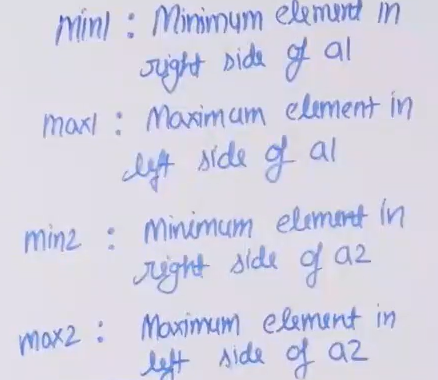 min1 : Minimum element in
right side of a1
max1 : Maximum element in
left side of a1
min2 : Minimum element in
right side of a2
max2 : Maximum element in
left side of a2